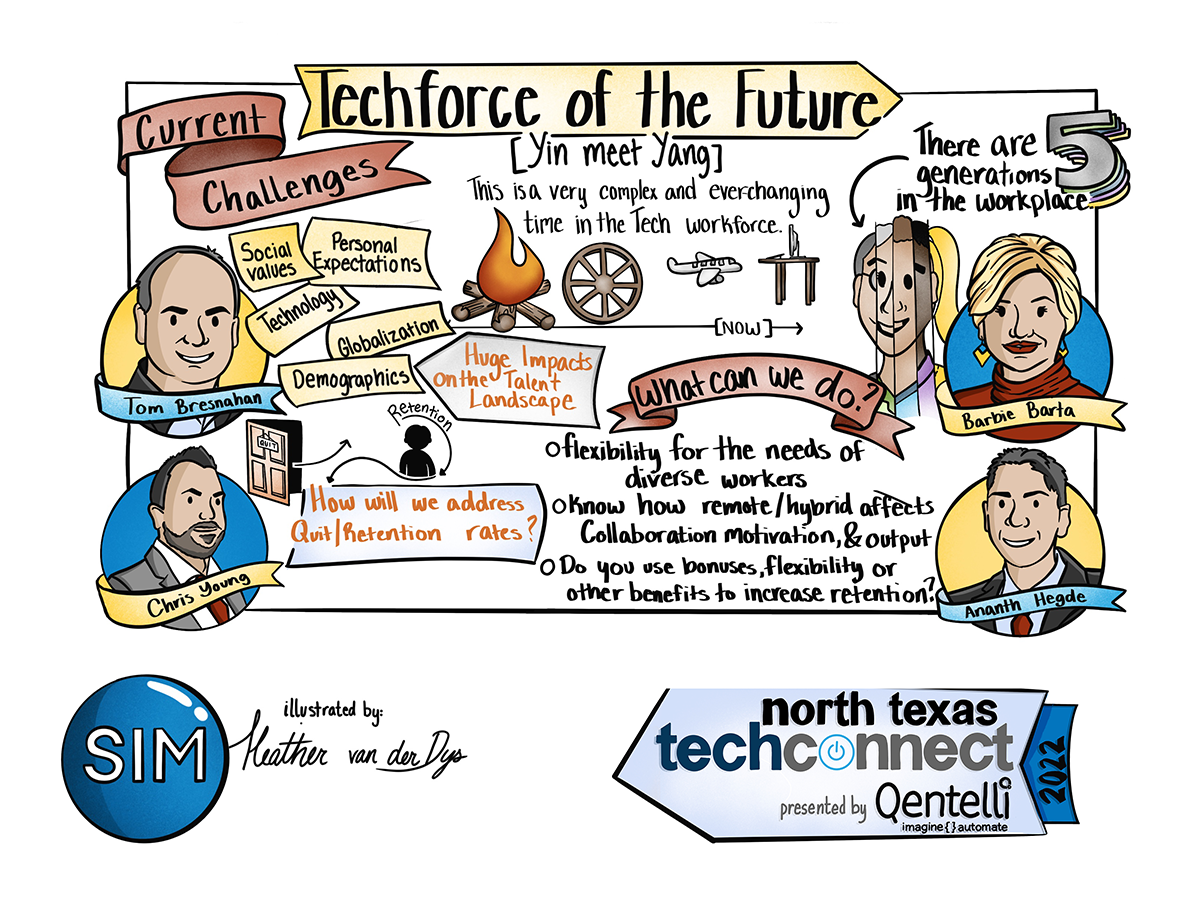 Techforce of the Future
[Yin meet Yang]
This is a very complex and ever-changing
time in the Tech workforce.
Current
Challenges
There are 5
generations
in the workplace.
Social
values
Personal
Expectations
Technology
Globalization
Demographics
[NOW]
Huge Impacts
On the Talent
Landscape
Tom Bresnahan
Barbie Barta
QUIT
Retention
How will we address
Quit/Retention rates?
Chris Young
What can we do?
flexibility for the needs of
diverse workers
Know how remote/hybrid affects
Collaboration motivation, & output
Do you use bonuses, flexibility or
other benefits to increase retention?
Ananth Hegde
SIM
illustrated by:
Heather van der Dys
north texas
techconnect
2022
presented by Qentelli
imagine{}automate